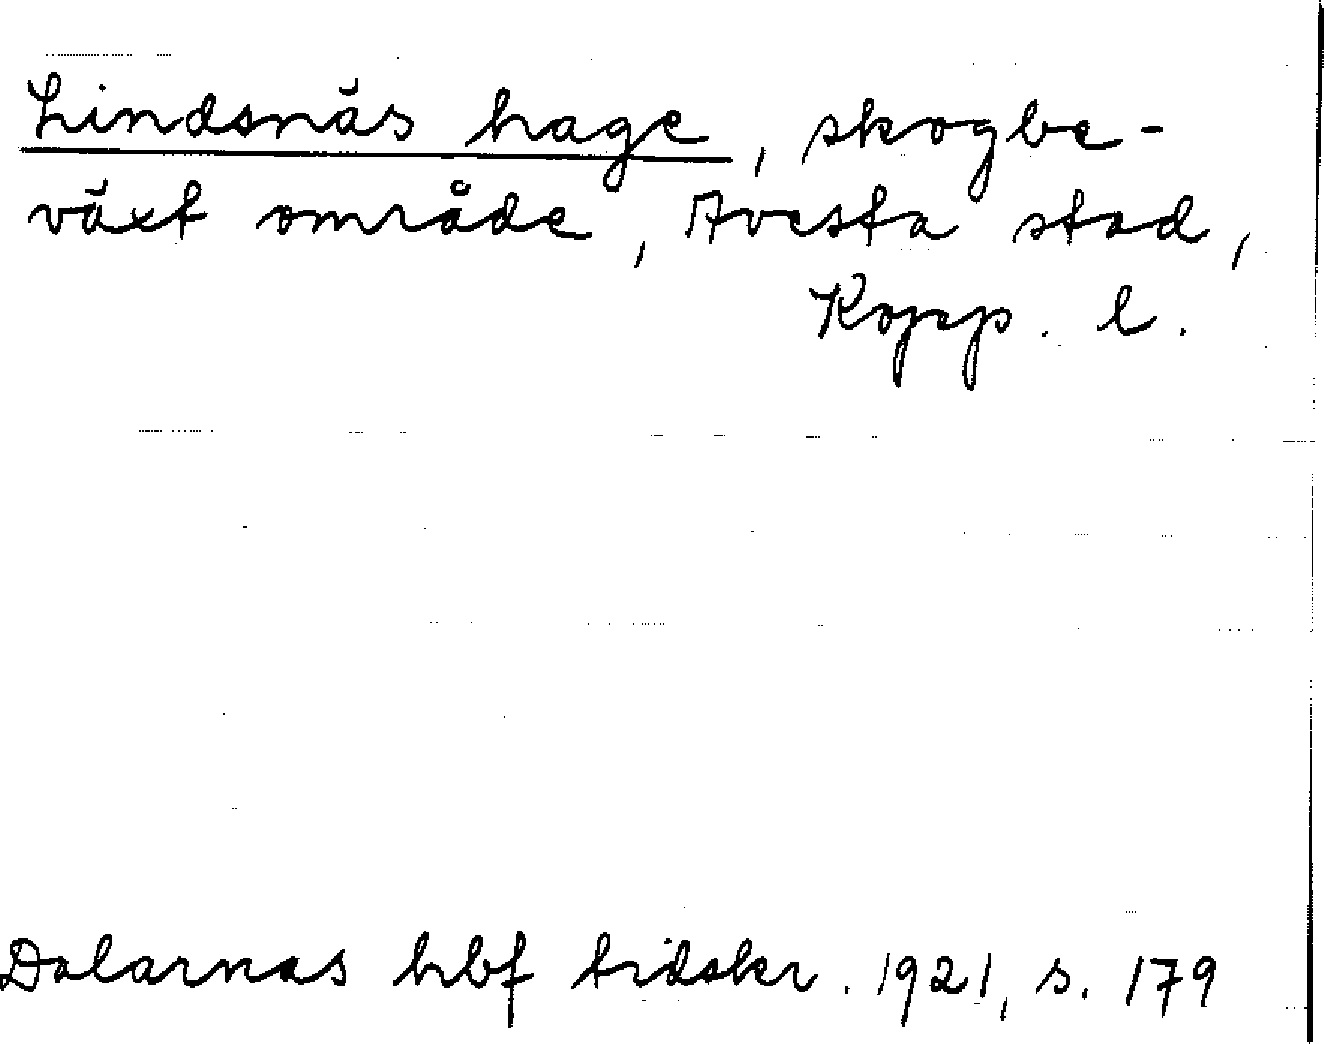 Lindsnäs hage, skogbe-
växt område, Avesta stad,
Kopp. l.
Dalarnas hbf tidskr. 1921, s. 179